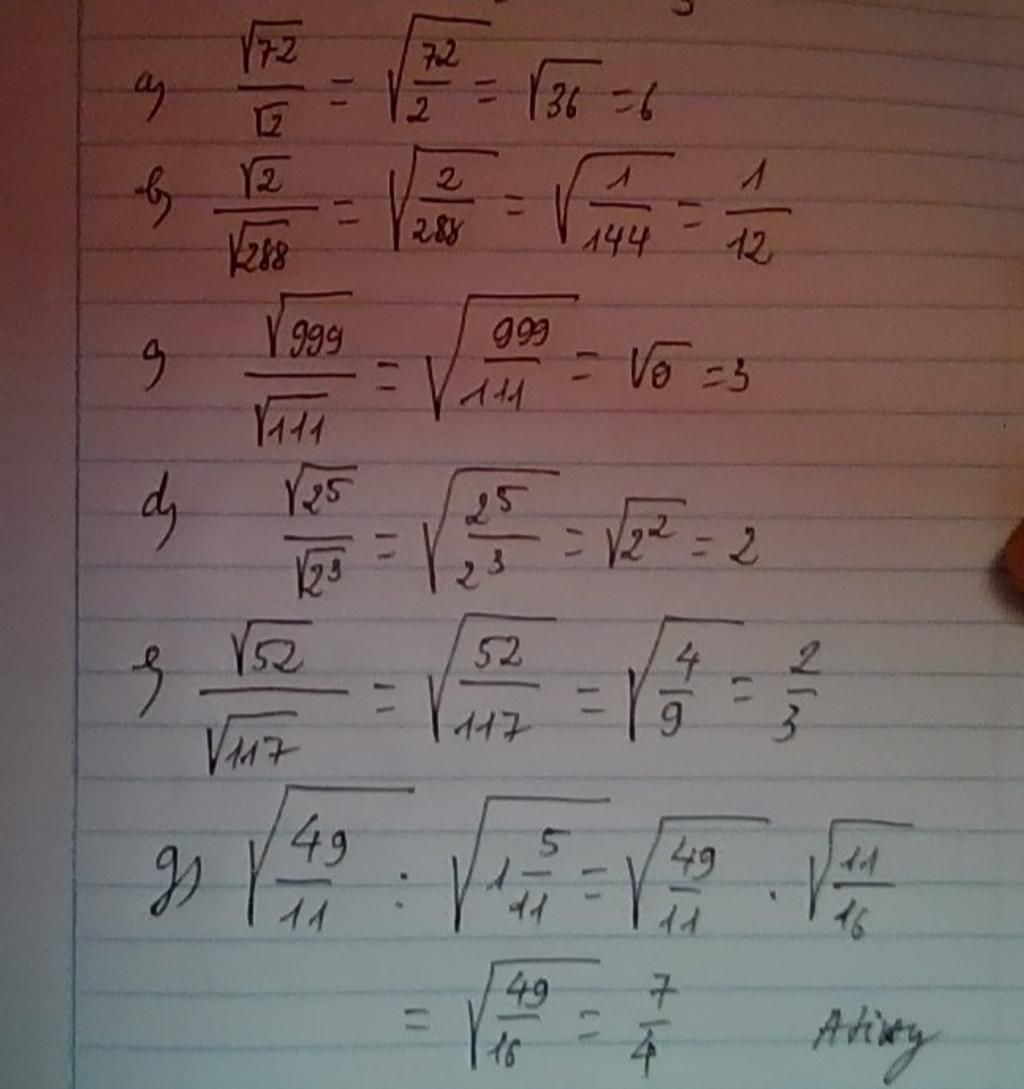 a) √72/√2 = √(72/2) = √36 = 6
b) √2/√288 = √(2/288) = √(1/144) = 1/12
c) √999/√111 = √(999/111) = √9 = 3
d) √2⁵/√2³ = √(2⁵/2³) = √2² = 2
e) √52/√117 = √(52/117) = √(4/9) = 2/3
g) √(49/11) : √(1 5/11) = √(49/11) . √(11/16)
= √(49/16) = 7/4